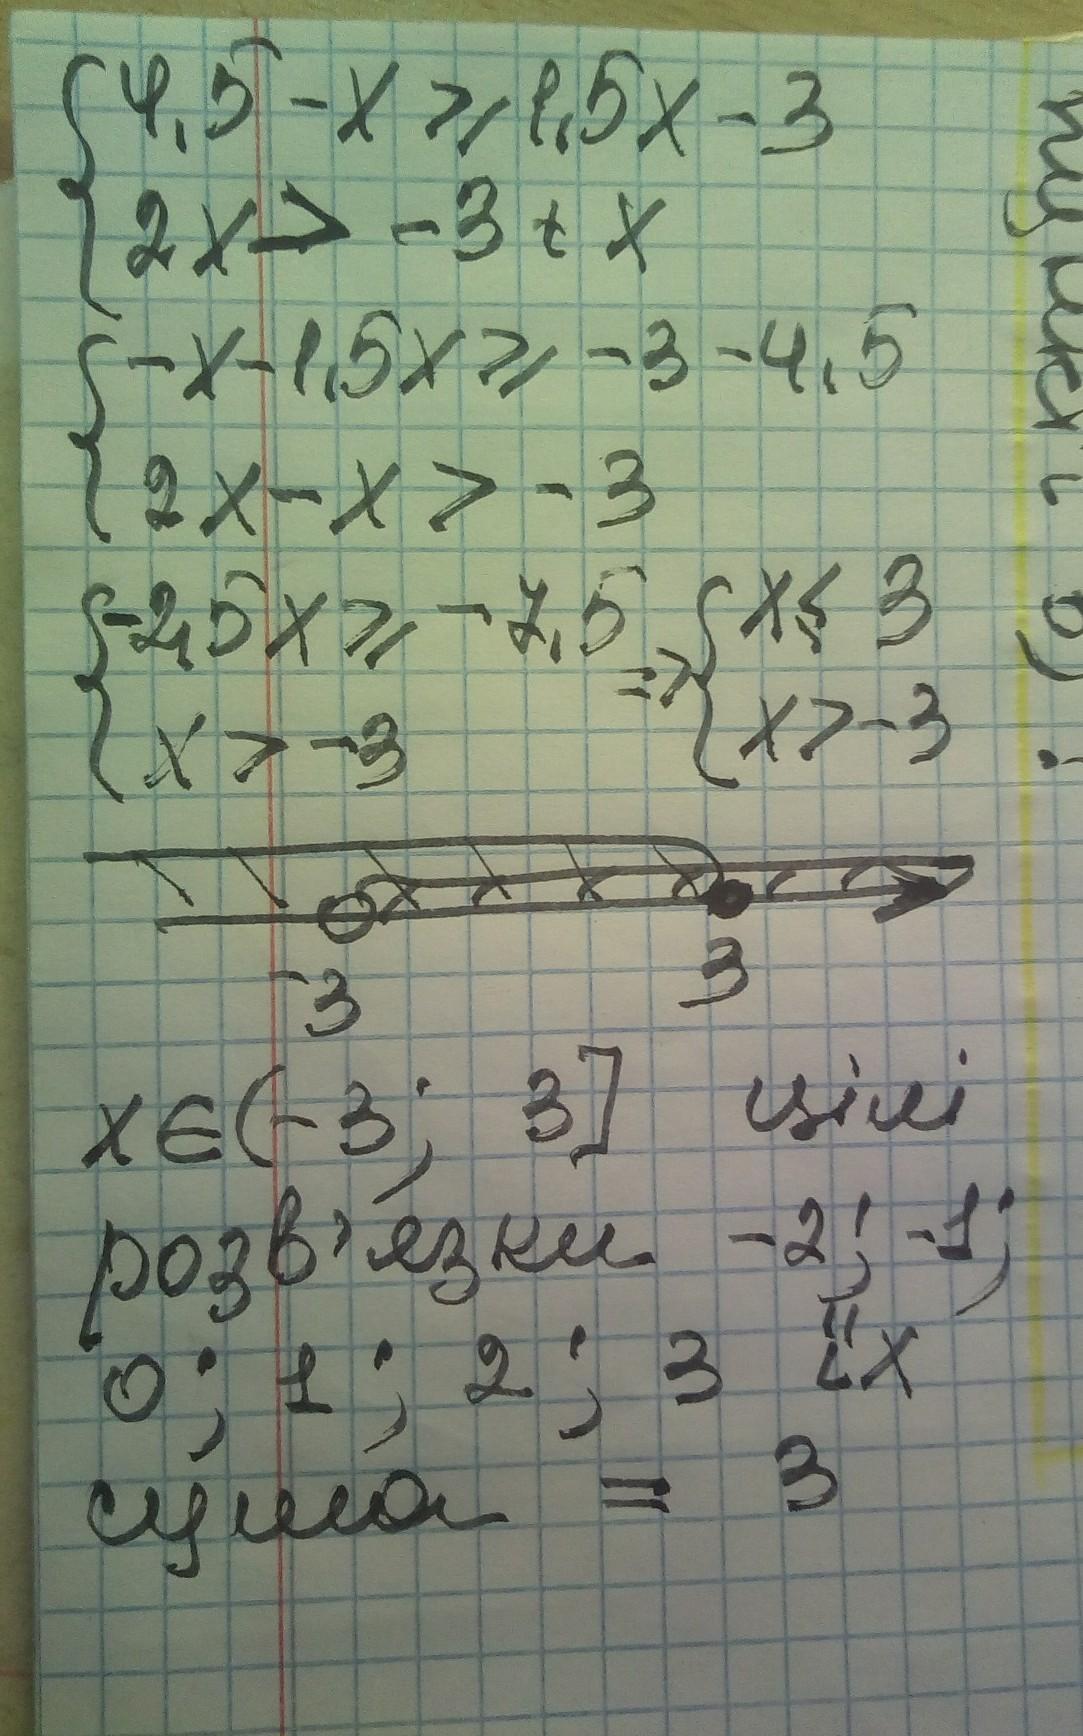 4,5 - x ⩾ 1,5x - 3
2x > -3 + x
-x - 1,5x ⩾ -3 - 4,5
2x - x > -3
-2,5x ⩾ -7,5 => x ⩽ 3
x > -3 x > -3
-3 3
x ∈ (-3; 3] цілі
розв'язки -2; -1;
0; 1; 2; 3 їх
сума = 3